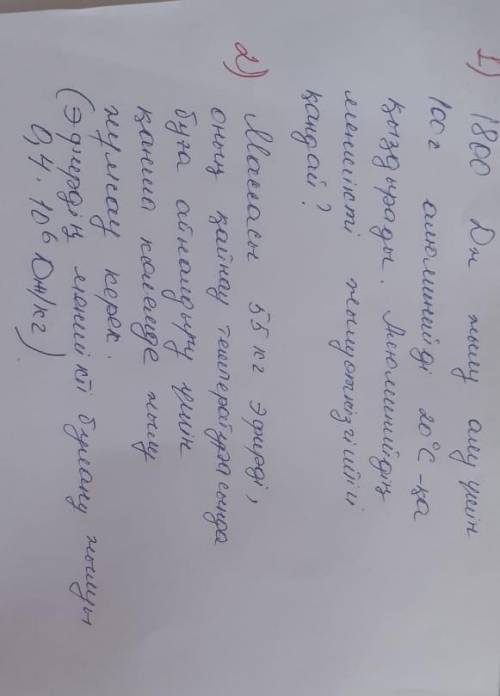 1) 1800 Дж жылу алу үшін
100 г алюминийді 20°C -қа
қыздырады. Алюминийдің
меншікті жылуөткізгіштігі
қандай?
2) Массасы 55 кг эфирді,
оның қайнау температурасында
буға айналдыру үшін
қанша көлемде жылу
жұмсау керек.
(Эфирдің меншікті булану жылуы
0,4·10⁶ Дж/кг)